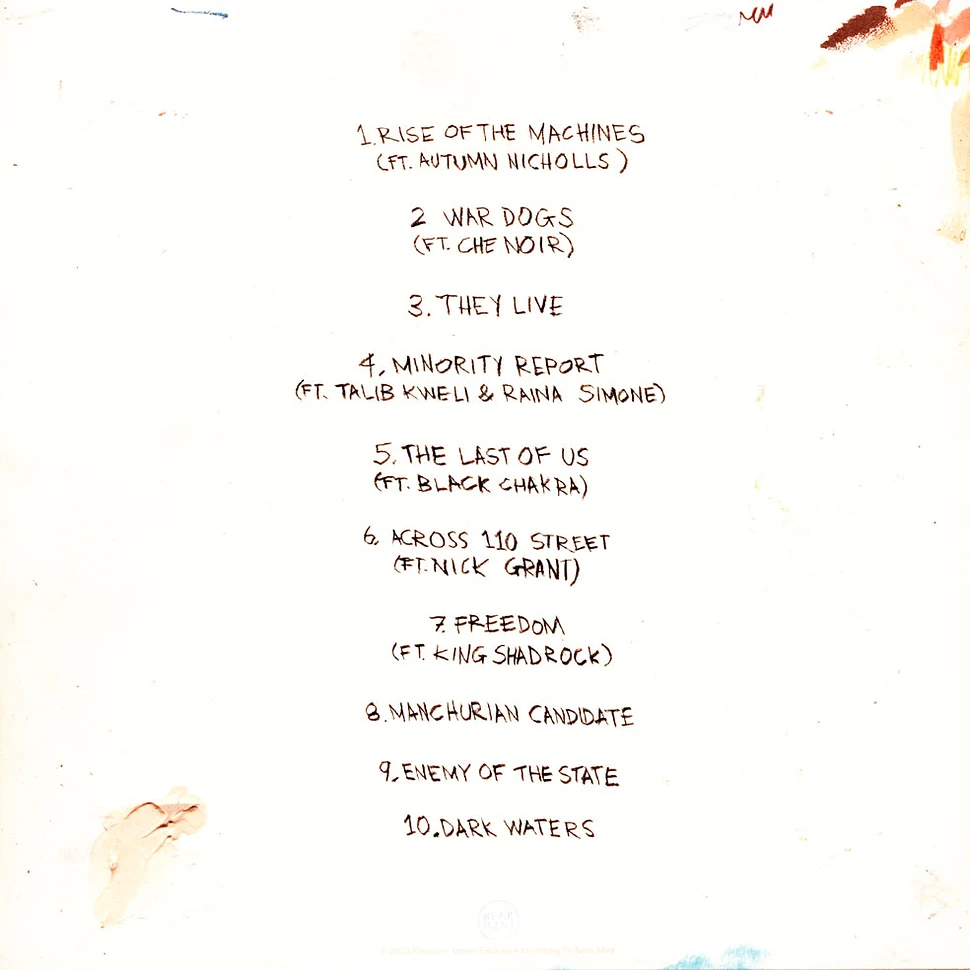 1. RISE OF THE MACHINES
(FT. AUTUMN NICHOLLS)
2 WAR DOGS
(FT. CHE NOIR)
3. THEY LIVE
4. MINORITY REPORT
(FT. TALIB KWELI & RAINA SIMONE)
5. THE LAST OF US
(FT. BLACK CHAKRA)
6. ACROSS 110 STREET
(FT. NICK GRANT)
7. FREEDOM
(FT. KING SHADROCK)
8. MANCHURIAN CANDIDATE
9. ENEMY OF THE STATE
10. DARK WATERS